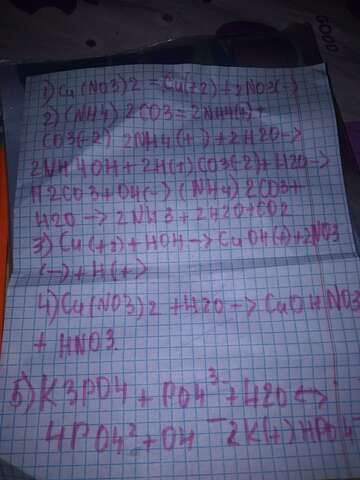 1) Cu(NO3)2 = Cu(+2) + 2NO3(-)
2) (NH4)2CO3 = 2NH4(+) +
CO3(-2) 2NH4(+) + 2H2O ->
2NH4OH + 2H(+) CO3(-2) + H2O ->
H2CO3 + OH(-) (NH4)2CO3 +
H2O -> 2NH3 + 2H2O + CO2
3) Cu(+2) + HOH -> CuOH(+) + 2NO3
(-) + H(+)
4) Cu(NO3)2 + H2O -> CuOHNO3
+ HNO3.
5) K3PO4 + PO4³⁻ + H2O <->
4PO4² + OH⁻ 2K(+) HPO4